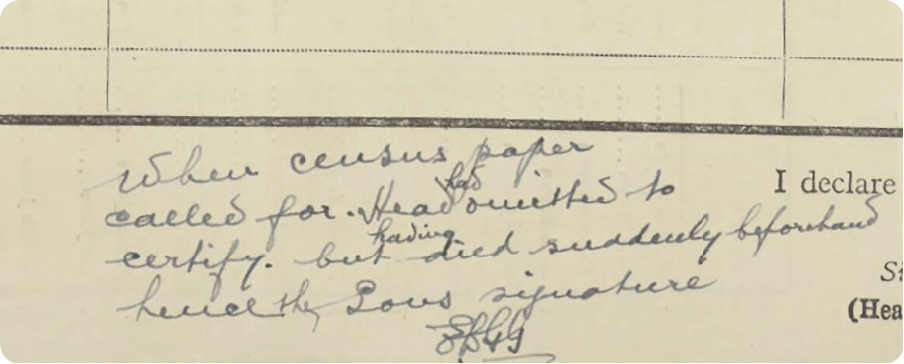 When census paper
called for. Head had omitted to
certify. but having died suddenly beforehand
hence the Sons signature
I declare
Si
(Hea